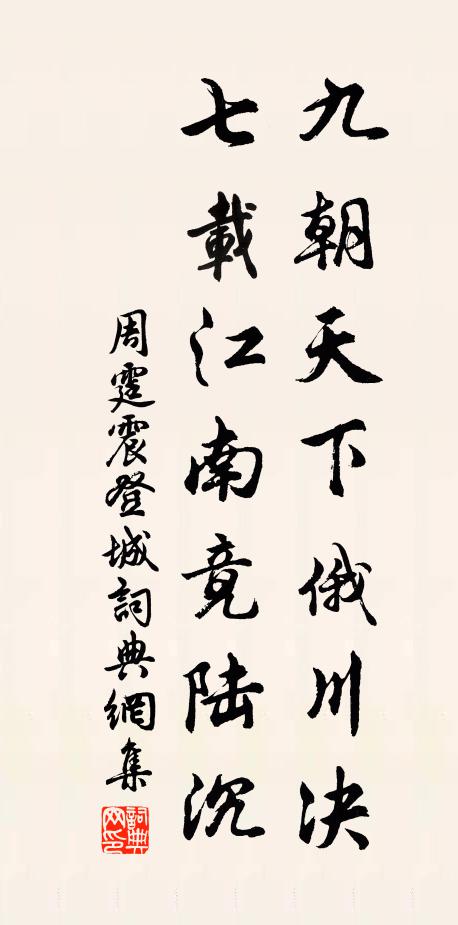 九朝天下俄川决
七載江南竟陆沉
周霆震登城詞典網集
詞典网印